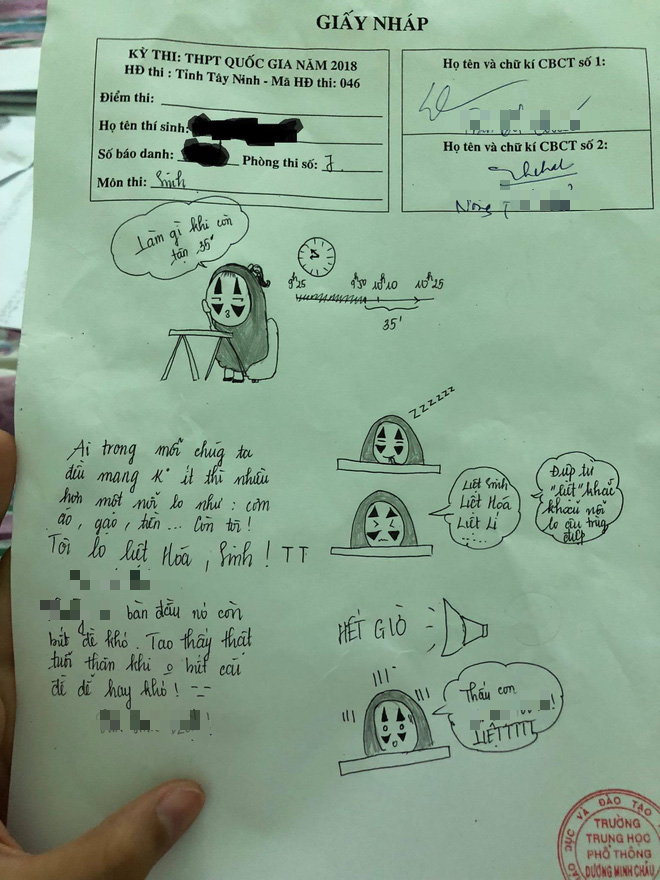 GIẤY NHÁP
KỲ THI: THPT QUỐC GIA NĂM 2018
HĐ thi : Tỉnh Tây Ninh - Mã HĐ thi: 046
Điểm thi:
Họ tên thí sinh:
Số báo danh: Phòng thi số: 7
Môn thi: Sinh
Họ tên và chữ kí CBCT số 1:
Họ tên và chữ kí CBCT số 2:
Nông T
Làm gì khi còn
tận 35'
9h25 9h50 10h10 10h25
35'
zzzzzz
Ai trong mỗi chúg ta
đều mang k° ít thì nhiều
hơn một nỗi lo như : cơm
áo, gạo, tiền ... Còn tôi!
Tôi lo liệt Hóa, Sinh ! TT
bàn đầu nó còn
biết đề khó. Tao thấy thật
tuổi thân khi o biết cái
đề dễ hay khó !
Liệt Sinh
Liệt Hóa
Liệt Lí
.....
Đúp từ
"liệt" khắc
khoải nỗi
lo câu trùng
điệp
HẾT GIỜ
Thấu con
!
LIỆTTTTT
DỤC VÀ ĐÀO TẠO
TRƯỜNG
TRUNG HỌC
PHỔ THÔNG
DƯƠNG MINH CHÂU